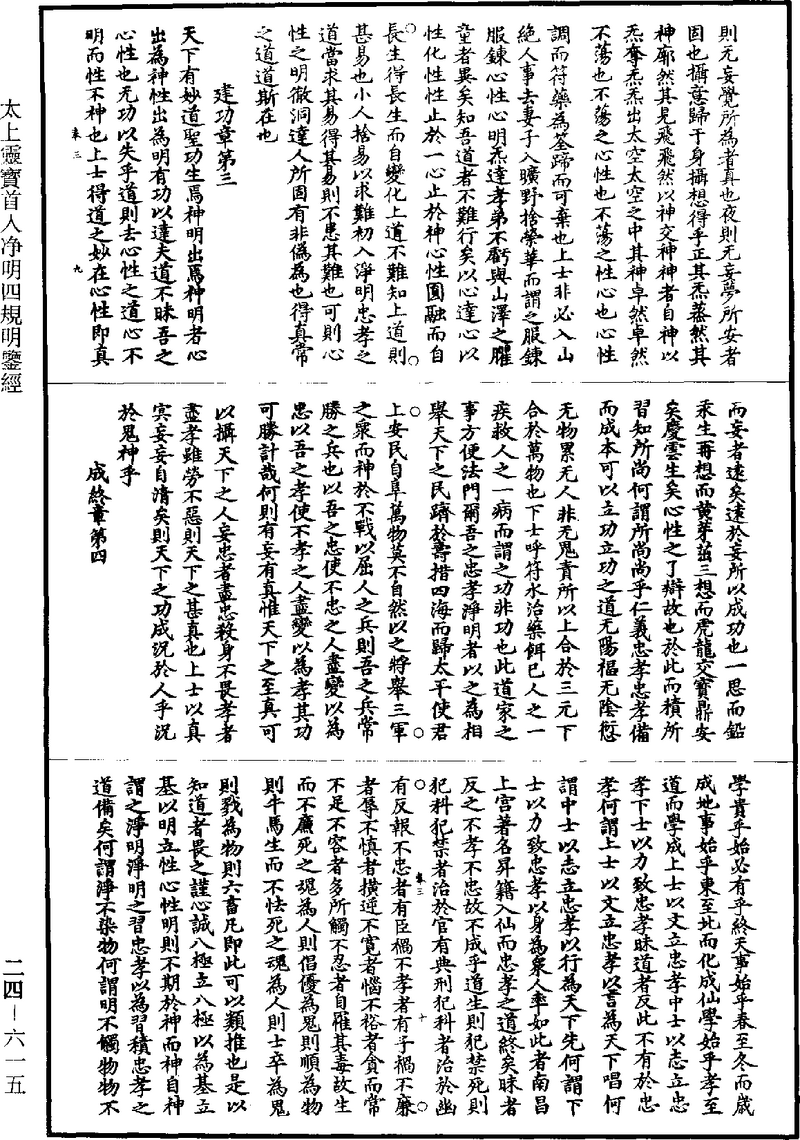 則无妄覺所為者真也夜則无妄夢所安者
因也攝意歸于身攝想得乎正其炁蓊然其
神廓然其見飛飛然以神交神神者自神以
炁奪炁炁出太空太空之中其神卓然卓然
不蕩也不蕩之心性也不蕩之性心也心性
調而符藥為筌蹄而可棄也上士非必入山
絕人事去妻子入曠野捨榮華而謂之服鍊
服鍊心性心明炁達孝弟不虧與山澤之臞
童者異矣知吾道者不難行矣以心達心以
性化性性止於一心止於神心性圓融而自
長生得長生而自變化上道不難知上道則
甚易也小人捨易以求難初入淨明忠孝之
道當求其易得其易則不患其難也可則心
性之明徹洞達人所固有非偽為也得真常
之道道斯在也
建功章第三
天下有妙道聖功生焉神明出焉神明者心
出為神性出為明有功以達夫道不昧吾之
心性也无功以失乎道則去心性之道心不
明而性不神也上士得道之妙在心性即真
而妄者遠矣遠於妄所以成功也一思而鉛
汞生再想而黄芽茁三想而虎龍交寶鼎安
矣慶雲生矣心性之了辯故也於此而積所
習知所尚何謂所尚尚乎仁義忠孝忠孝備
而成本可以立功立功之道无陽福无陰愆
无物累无人非无鬼責所以上合於三元下
合於萬物也下士呼符水治藥餌已人之一
疾救人之一病而謂之功非功也此道家之
事方便法門爾吾之忠孝淨明者以之為相
舉天下之民躋於壽措四海而歸太平使君
上安民自阜萬物莫不自然以之將舉三軍
之衆而神於不戰以屈人之兵則吾之兵常
勝之兵也以吾之忠使不忠之人盡變以為
忠以吾之孝使不孝之人盡變以為孝其功
可勝計哉何則有妄有真惟天下之至真可
以攝天下之人妄忠者盡忠殺身不畏孝者
盡孝雖勞不惡則天下之甚真也上士以真
冥妄妄自清矣則天下之功成況於人乎況
於鬼神乎
成終章第四
學貴乎始必有乎終天事始乎春至冬而歲
成地事始乎東至北而化成仙學始乎孝至
道而學成上士以文立忠孝中士以志立忠
孝下士以力致忠孝昧道者反此不有於忠
孝何謂上士以文立忠孝以言為天下唱何
謂中士以志立忠孝以行為天下先何謂下
士以力致忠孝以身為衆人率如此者南昌
上宫著名昇籍入仙而忠孝之道終矣昧者
反之不孝不忠故不成乎道生則犯禁死則
犯科犯禁者治於官有典刑犯科者治於幽
有反報不忠者有臣禍不孝者有子禍不廉
者辱不慎者橫逆不寬者惱不裕者貪而常
不足不容者多所觸不忍者自罹其毒故生
而不廉死之魂為人則倡優為鬼則順為物
則牛馬生而不怯死之魂為人則士卒為鬼
則戮為物則六畜凡即此可以類推也是以
知道者畏之謹心誠八極立八極以為基立
基以明立性心性明則不期於神而神自神
謂之淨明淨明之習忠孝以為習積忠孝之
道備矣何謂淨不染物何謂明不觸物物不
太上靈寶首入净明四規明鑒經
二四—六一五